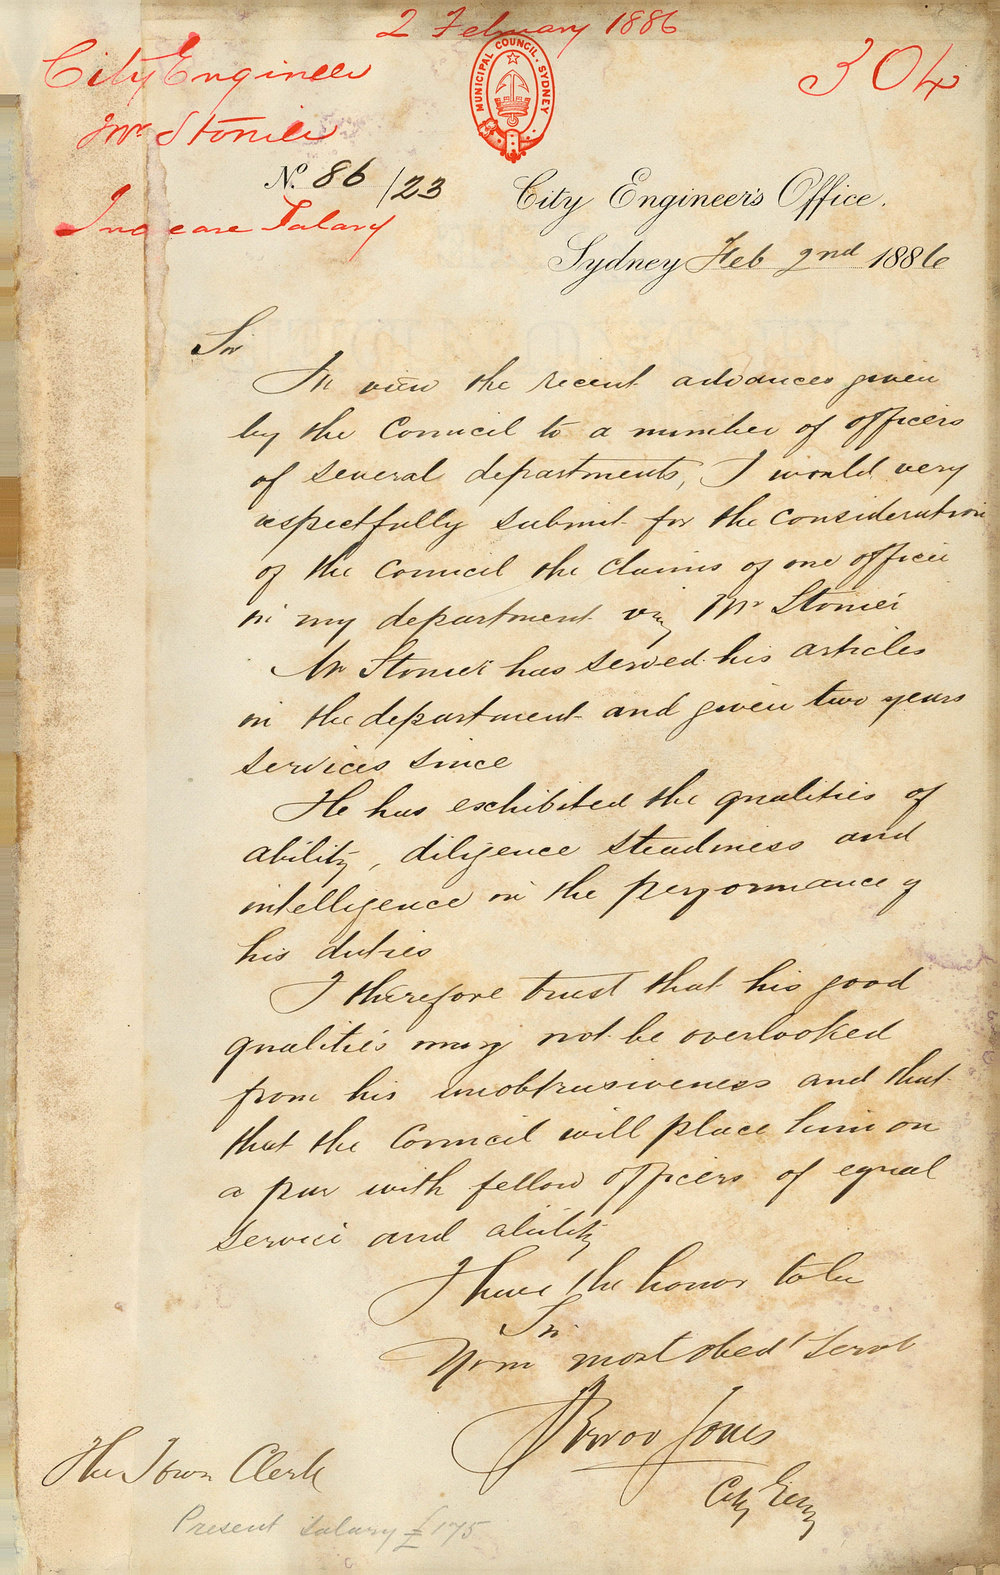 2 February 1886
City Engineer
304
Mr Stonier
MUNICIPAL COUNCIL. SYDNEY
No. 86/23
City Engineer's Office.
Increase Salary
Sydney Feb 2nd 1886
Sir
In view the recent advances given
by the Council to a number of officers
of several departments, I would very
respectfully submit for the consideration
of the Council the claims of one officer
in my department viz Mr Stonier
Mr Stonier has served his articles
in the department and given two years
services since
He has exhibited the qualities of
ability, diligence steadiness and
intelligence in the performance of
his duties
I therefore trust that his good
qualities may not be overlooked
from his unobtrusiveness and that
that the Council will place him on
a par with fellow officers of equal
service and ability
I have the honor to be
Sir
Your most obed't servt
Trevor Jones
City Engr
The Town Clerk
Present Salary £175